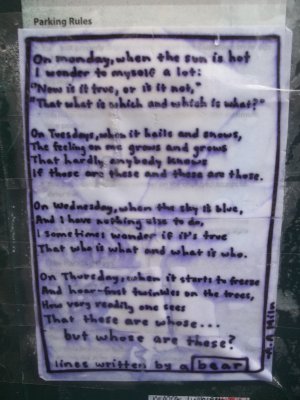 Parking Rules
On monday, when the sun is hot
I wonder to myself a lot:
"Now is it true, or is it not,"
"That what is which and which is what?"
On Tuesday, when it hails and snows,
The feeling on me grows and grows
That hardly anybody knows
If those are these and these are those.
On Wednesday, when the sky is blue,
And I have nothing else to do,
I sometimes wonder if it's true
That who is what and what is who.
On Thursday, when it starts to freeze
And hoar-frost twinkles on the trees,
How very readily one sees
That these are whose...
but whose are these?
lines written by a bear
A.A Miln